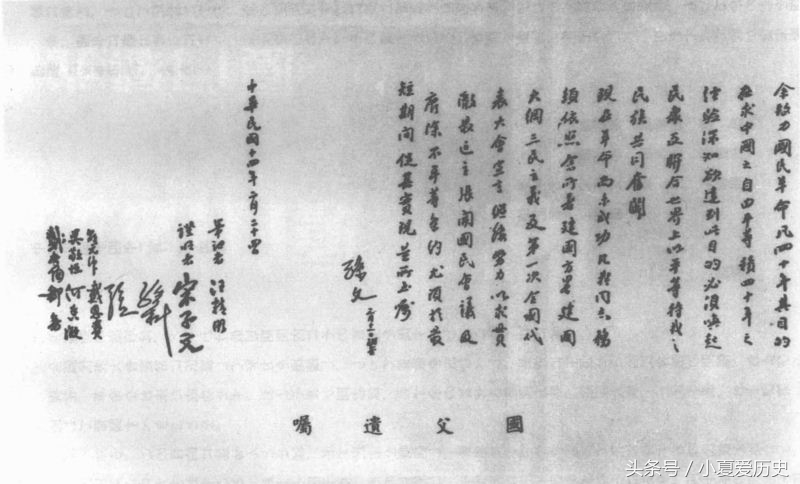 余致力國民革命凡四十年其目的
在求中國之自由平等積四十年之
經驗深知欲達到此目的必須喚起
民衆及聯合世界上以平等待我之
民族共同奮鬪
現在革命尚未成功凡我同志務
須依照余所著建國方畧建國
大綱三民主義及第一次全國代
表大會宣言繼續努力以求貫
徹最近主張開國民會議及
廢除不平等條約尤須於最
短期間促其實現是所至囑
孫文 三月十一日補簽
中華民國十四年二月二十四日
筆記者 汪精衛
證明者 宋子文
孫科
邵元冲 戴恩賽
吳敬恒 何香凝
戴季陶 鄒魯
國父遺囑
头条号 / 小夏爱历史